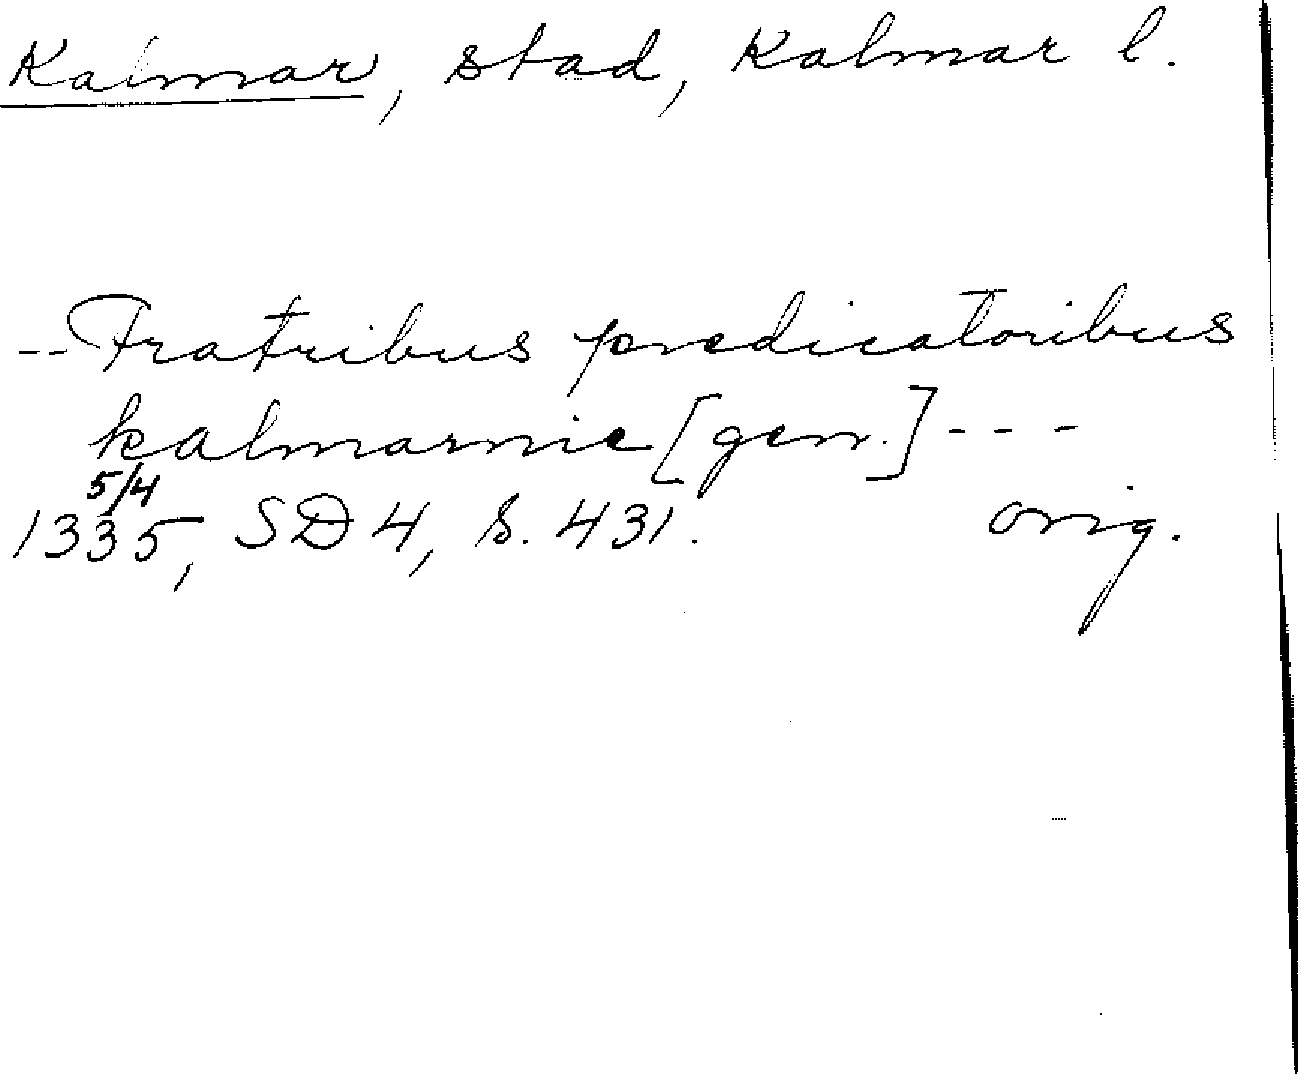 Kalmar, stad, Kalmar l.
-- Fratribus predicatoribus
kalmarnie [gen.] - - -
5/4
1335, SD 4, s. 431. orig.